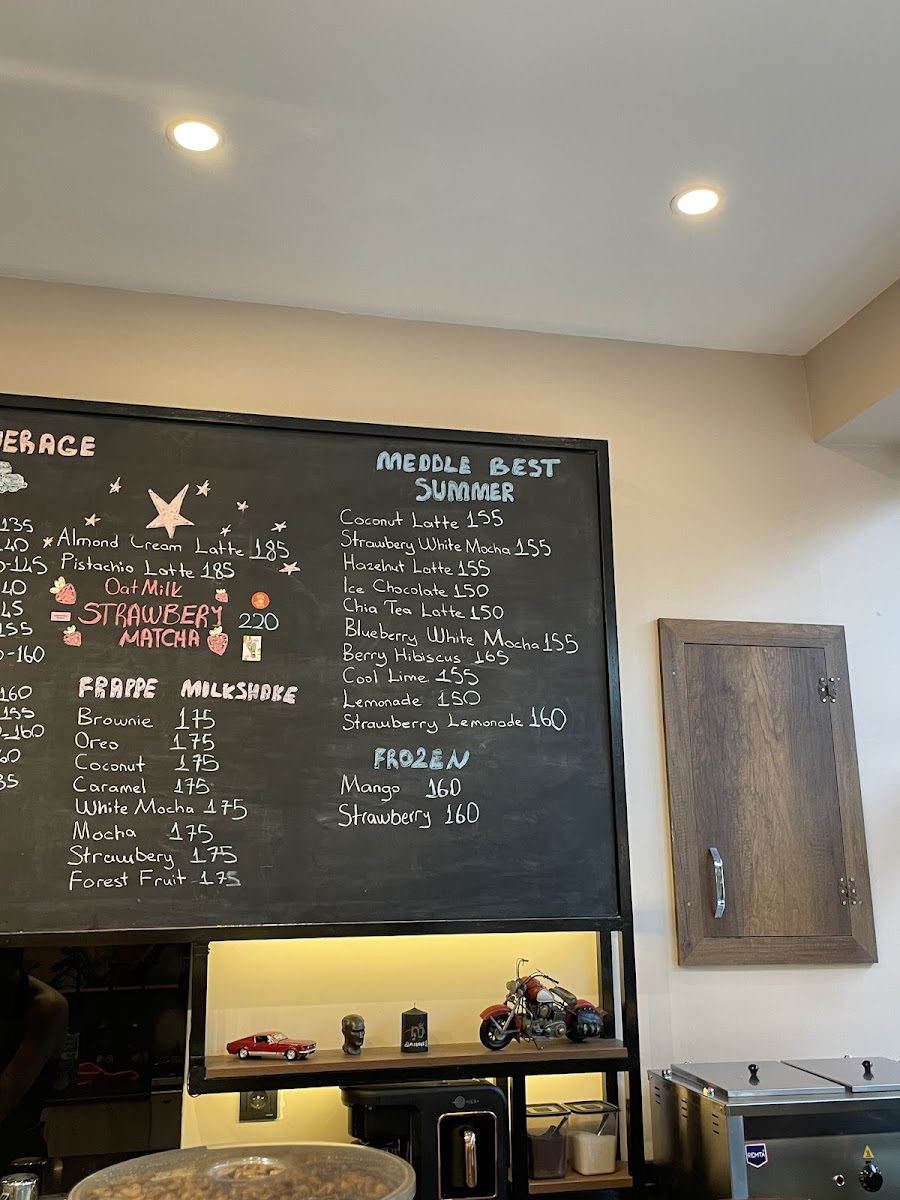 ERAGE
135
40
-145
40
45
155
-160
160
155
-160
60
35
*Almond Cream Latte 185
Pistachio Latte 185
Oat Milk
STRAWBERY 220
MATCHA
FRAPPE MILKSHAKE
Brownie 175
Oreo 175
Coconut 175
Caramel 175
White Mocha 175
Mocha 175
Strawbery 175
Forest Fruit 175
MEDDLE BEST
SUMMER
Coconut Latte 155
Strawbery White Mocha 155
Hazelnut Latte 155
Ice Chocolate 150
Chia Tea Latte 150
Blueberry White Mocha 155
Berry Hibiscus 165
Cool Lime 155
Lemonade 150
Strawberry Lemonade 160
FROZEN
Mango 160
Strawberry 160
REMTA